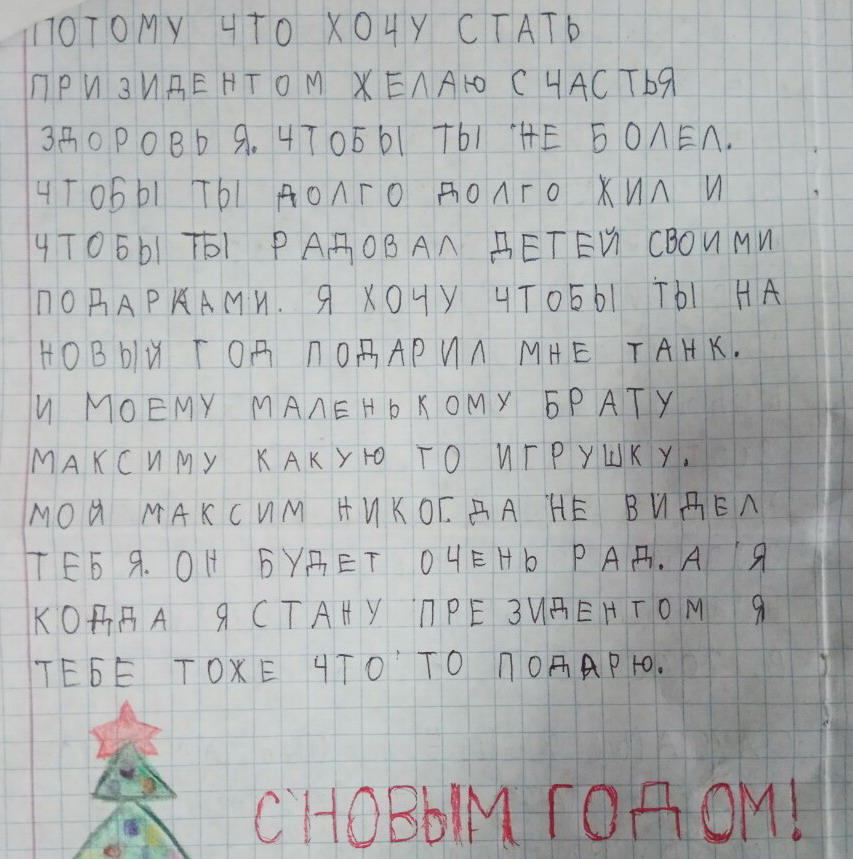 ПОТОМУ ЧТО ХОЧУ СТАТЬ
ПРИЗИДЕНТОМ ЖЕЛАЮ СЧАСТЬЯ
ЗДОРОВЬЯ. ЧТОБЫ ТЫ НЕ БОЛЕЛ.
ЧТОБЫ ТЫ ДОЛГО ДОЛГО ЖИЛ И
ЧТОБЫ ТЫ РАДОВАЛ ДЕТЕЙ СВОИМИ
ПОДАРКАМИ. Я ХОЧУ ЧТОБЫ ТЫ НА
НОВЫЙ ГОД ПОДАРИЛ МНЕ ТАНК.
И МОЕМУ МАЛЕНЬКОМУ БРАТУ
МАКСИМУ КАКУЮ ТО ИГРУШКУ.
МОЙ МАКСИМ НИКОГДА НЕ ВИДЕЛ
ТЕБЯ. ОН БУДЕТ ОЧЕНЬ РАД. А Я
КОДДА Я СТАНУ ПРЕЗИДЕНТОМ Я
ТЕБЕ ТОЖЕ ЧТО ТО ПОДАРЮ.
С НОВЫМ ГОДОМ!